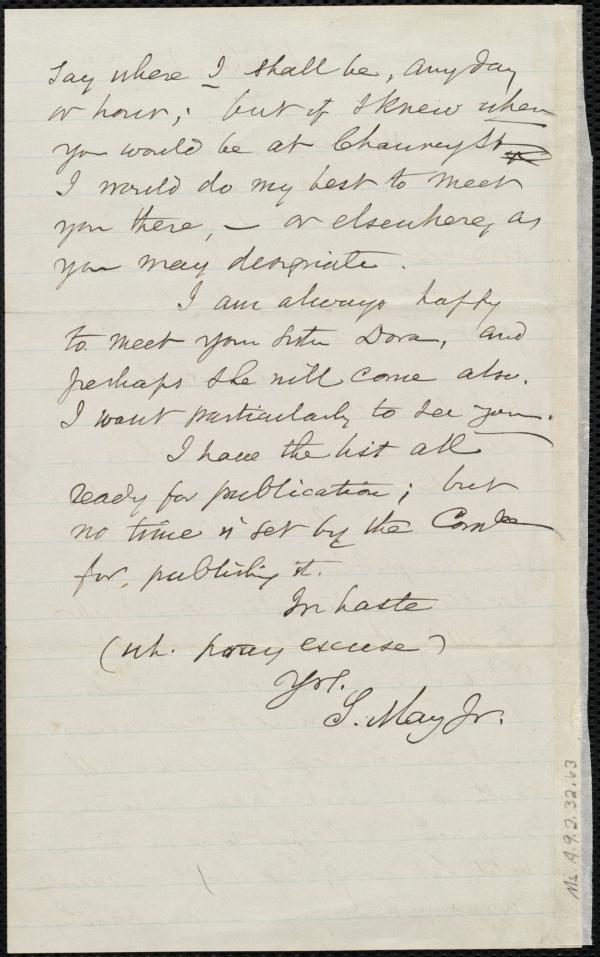 say where I shall be, any day
or hour; but if I knew when
you would be at Chauncy St
I would do my best to meet
you there, — or elsewhere, as
you may designate.
I am always happy
to meet your Sister Dora, and
perhaps she will come also.
I want particularly to see you.
I have the list all
ready for publication; but
no time is set by the Comtee
for publishing it.
In haste
(wh. pray excuse)
Yrs.
S. May Jr.
Ms. A.9.2.32.63